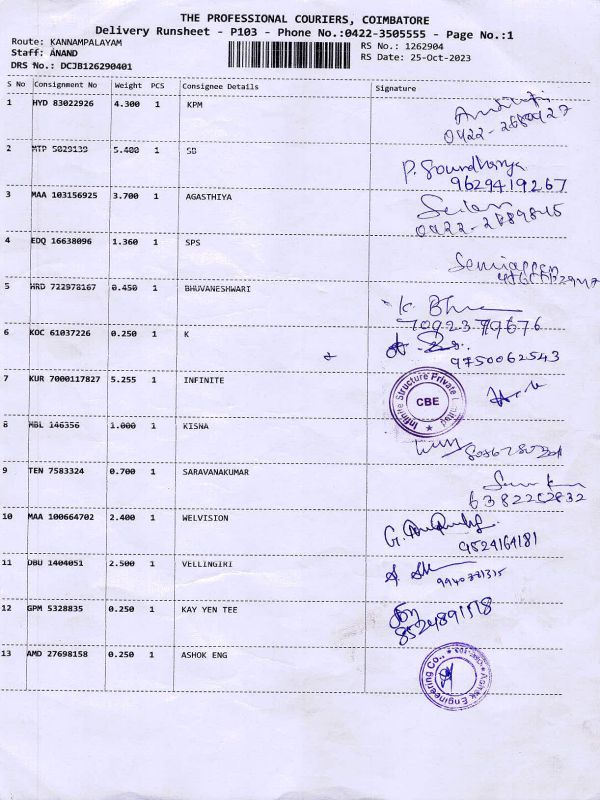 THE PROFESSIONAL COURIERS, COIMBATORE
Delivery Runsheet - P103 - Phone No.:0422-3505555 - Page No.:1
Route: KANNAMPALAYAM
RS No.: 1262904
Staff: ANAND
RS Date: 25-Oct-2023
DRS No.: DCJB126290401
S No Consignment No Weight PCS Consignee Details Signature
1 HYD 83022926 4.300 1 KPM
0422-2680427
2 MTP 5029139 5.400 1 SB
P. Soundharya
9629419267
3 MAA 103156925 3.700 1 AGASTHIYA
0422-2889845
4 EDQ 16638096 1.360 1 SPS
5 HRD 722978167 0.450 1 BHUVANESHWARI
K
6 KOC 61037226 0.250 1 K
9750062543
7 KUR 7000117827 5.255 1 INFINITE
Infinite Structure Private Limited
CBE
8 MBL 146356 1.000 1 KISNA
9 TEN 7583324 0.700 1 SARAVANAKUMAR
6382252832
10 MAA 100664702 2.400 1 WELVISION
G.
9524164181
11 DBU 1404051 2.500 1 VELLINGIRI
9940381315
12 GPM 5328835 0.250 1 KAY YEN TEE
13 AMD 27698158 0.250 1 ASHOK ENG
Engineering Co.,